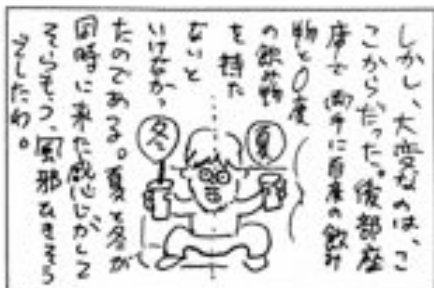 しかし、大変なのは、こ
こからだった。後部座
席で両手に百度の飲み
物と0度
の飲み物
を持た
ないと
いけなかっ
たのである。夏と冬が
同時に来た感じがして
そいらもう、風邪ひきそう
でしたわ。
夏
冬